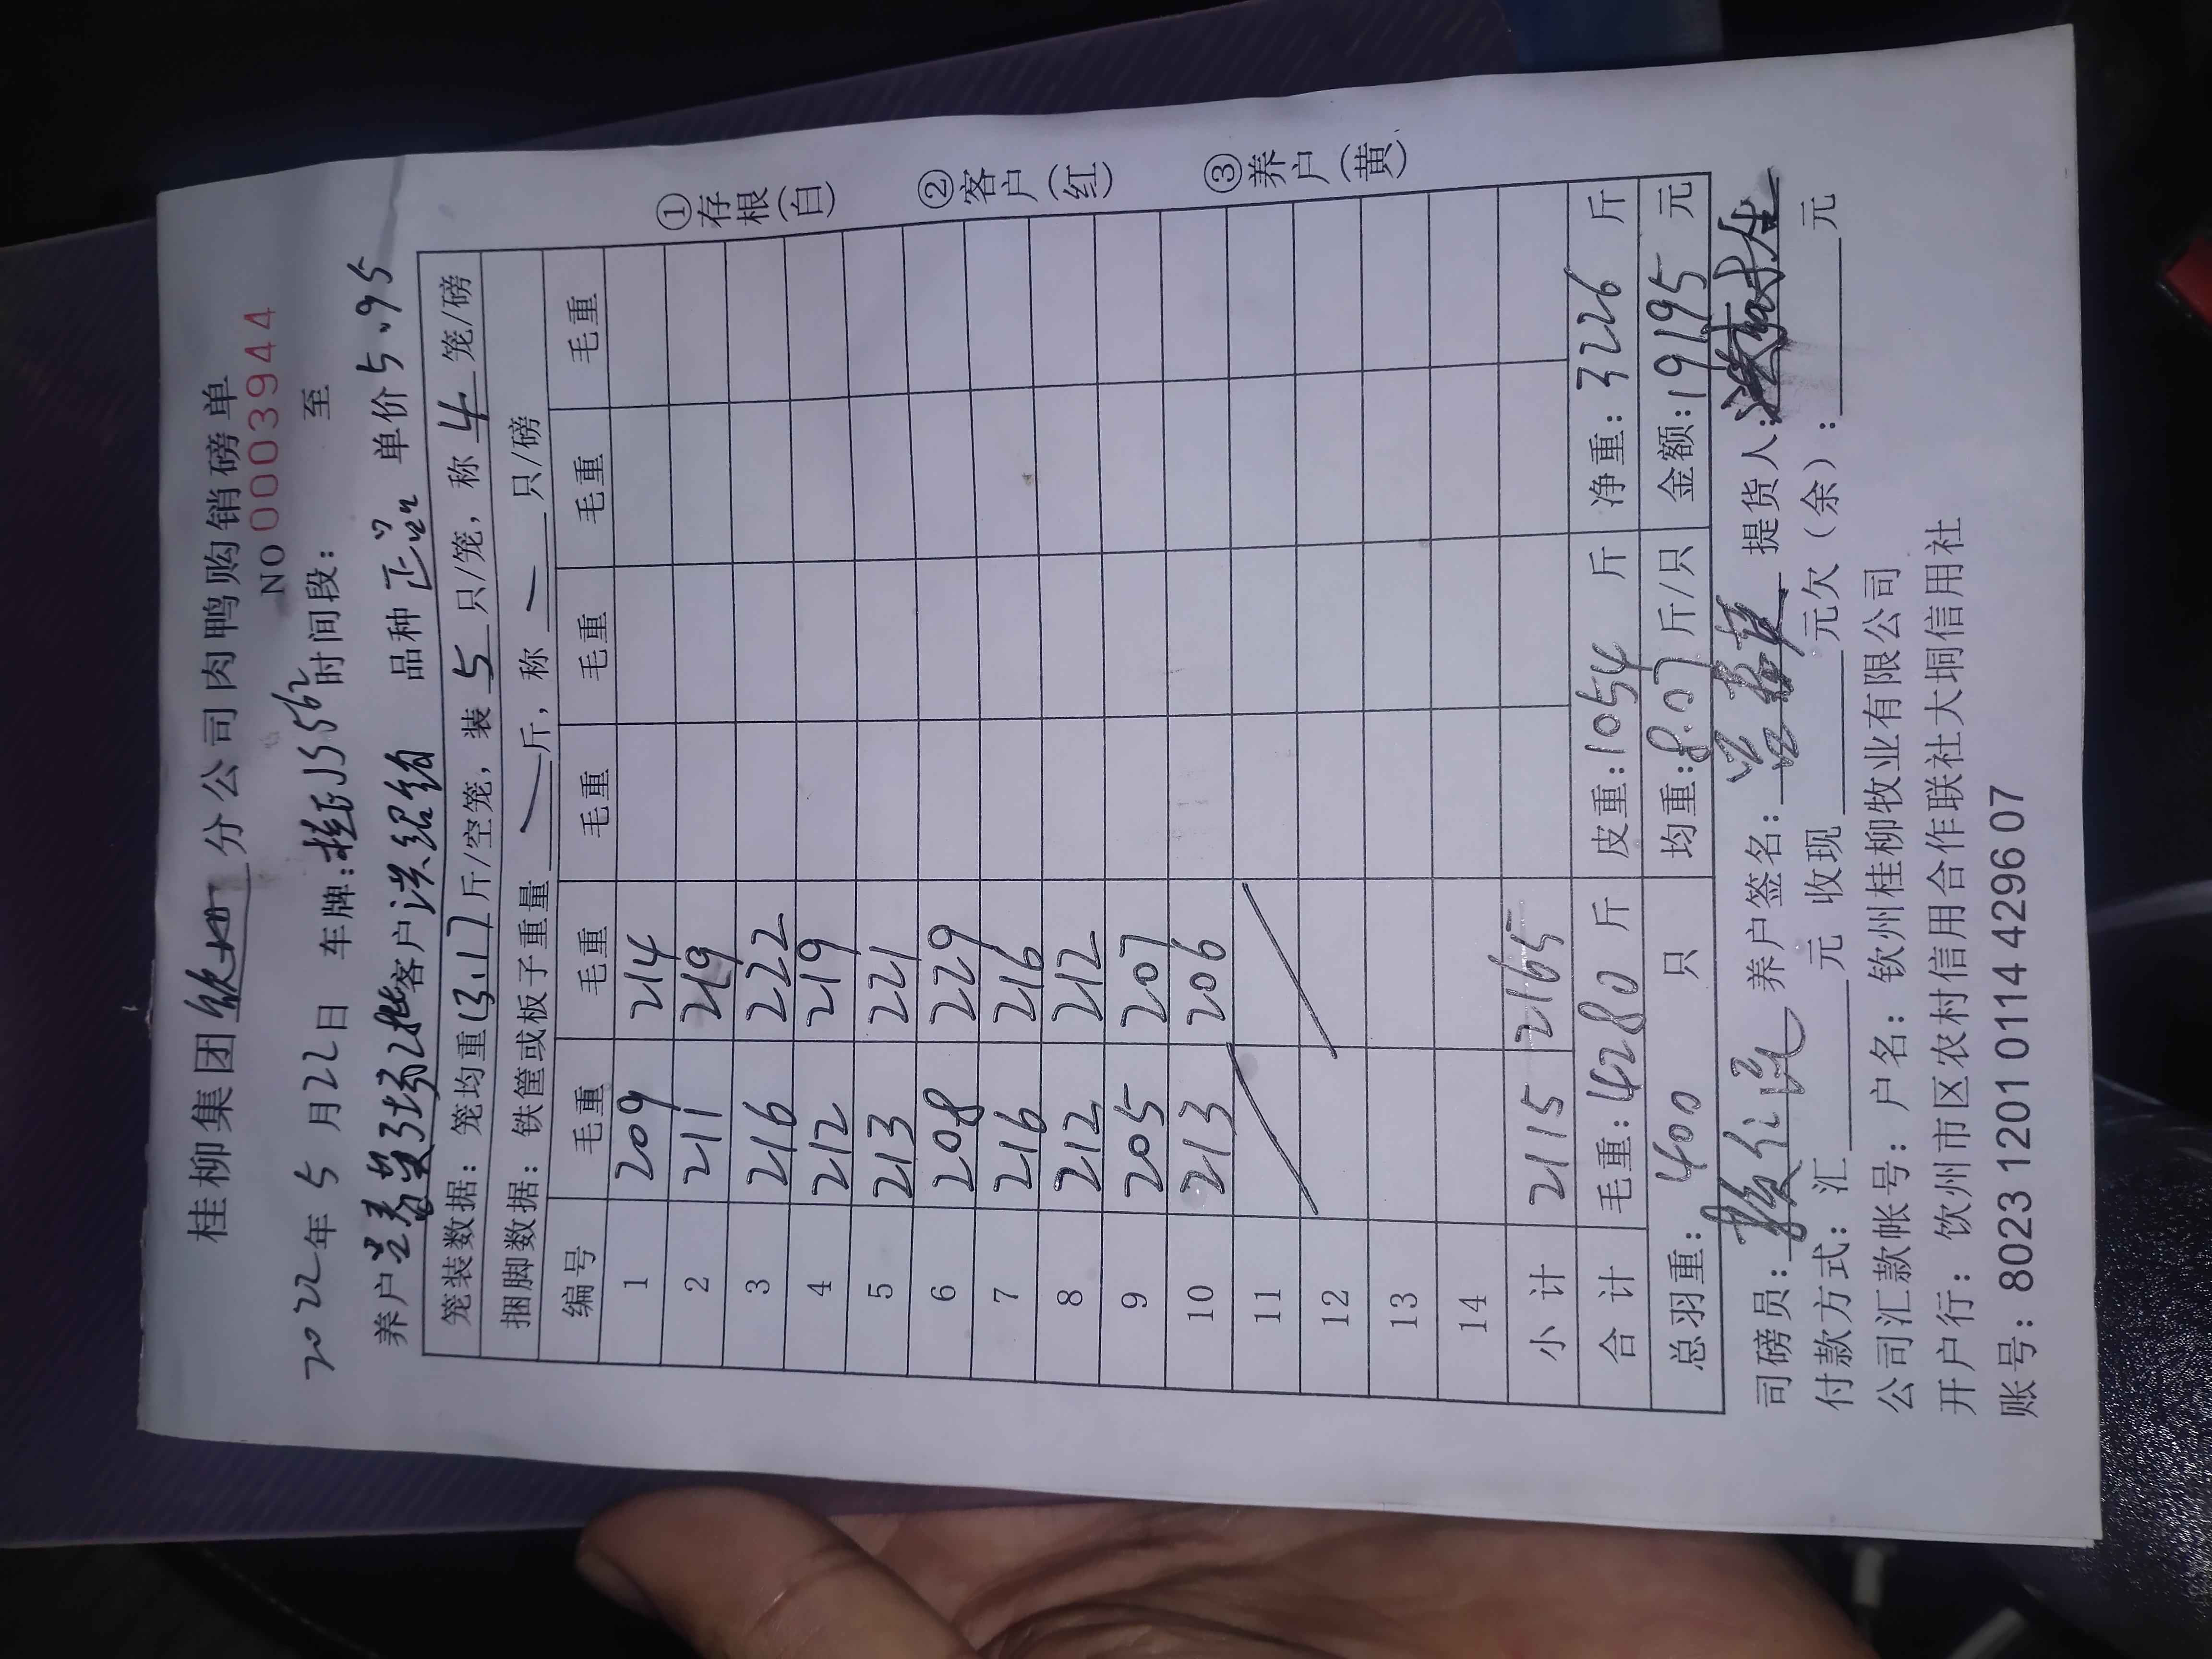 桂柳集团钦州分公司肉鸭购销磅单
NO 0003944
2022年5月22日 车牌:桂EJS562 时间段: 至
养户 客户洪绍 品种正品 单价5.95
笼装数据: 笼均重13.17斤/空笼, 装5只/笼, 称4笼/磅
捆脚数据: 铁筐或板子重量 斤, 称 只/磅
编号 毛重 毛重 毛重 毛重 毛重 毛重
1 209 214
2 211 219
3 216 222
4 212 219
5 213 221
6 208 229
7 216 216
8 212 212
9 205 207
10 213 206
11
12
13
14
小计 2115 2165
合计 毛重:4280斤 皮重:1054斤 净重:3226斤
总羽重:400只 均重:8.07斤/只 金额:19195元
①存根(白)
②客户(红)
③养户(黄)
司磅员: 养户签名: 提货人:
付款方式: 汇 元 收现 元欠(余): 元
公司汇款帐号: 户名: 钦州桂柳牧业有限公司
开户行: 钦州市区农村信用合作联社大垌信用社
账号: 8023 1201 0114 4296 07